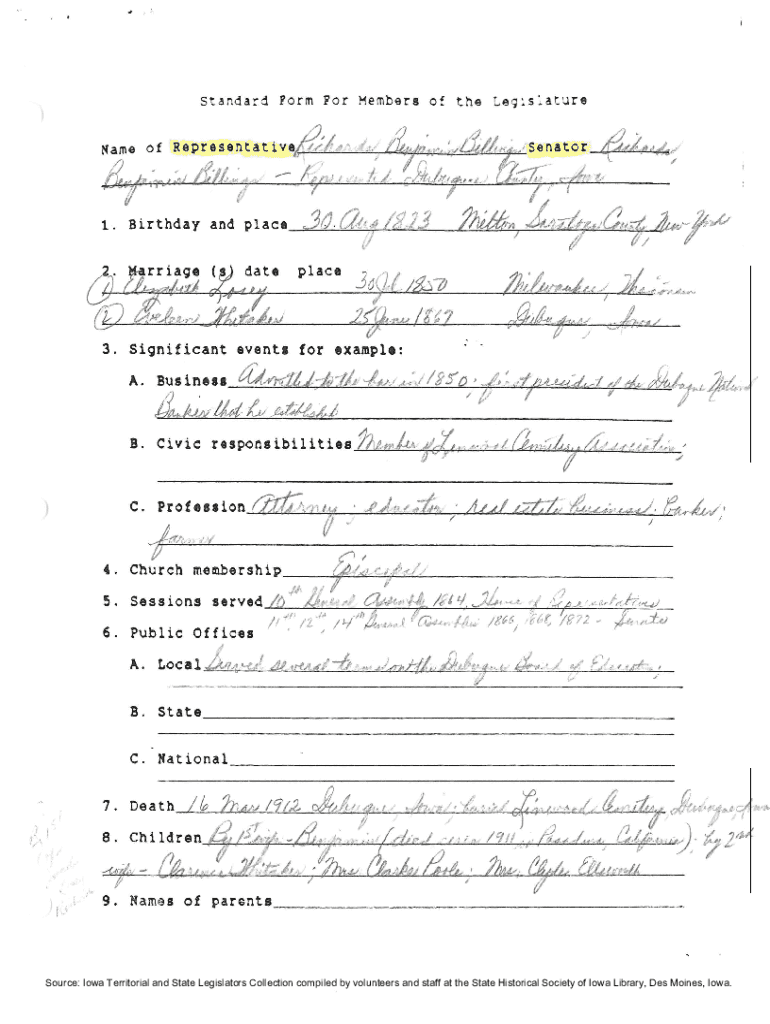 Standard Form For Members of the Legislature
Name of Representative Richards, Benjamin Billings Senator Richards,
Benjamin Billings - Represented Dubuque County, Iowa
1. Birthday and place 30 Aug 1823 Milton, Saratoga County, New York
2. Marriage (s) date place
(1) Elizabeth Losey 30 Jl 1850 Milwaukee, Wisconsin
(2) Eveleen Whitaker 25 June 1867 Dubuque, Iowa
3. Significant events for example:
A. Business Admitted to the bar in 1850; first president of the Dubuque National
Banker that he established
B. Civic responsibilities Member of Linwood Cemetery Association;
C. Profession Attorney; educator; real estate business; banker;
farmer
4. Church membership Episcopal
5. Sessions served 10th General Assembly 1864, House of Representatives
11th, 12th, 14th General Assemblies 1866, 1868, 1872 - Senate
6. Public Offices
A. Local Served several terms on the Dubuque Board of Education;
B. State
C. National
7. Death 16 Mar 1912 Dubuque, Iowa; buried Linwood Cemetery, Dubuque, Iowa
8. Children By 1st wife - Benjamin (died circa 1911, Pasadena, California); by 2nd
wife - Clarence Whitaker; Mrs. Clarke Poole; Mrs. Clyde Ellsworth
9. Names of parents
Source: Iowa Territorial and State Legislators Collection compiled by volunteers and staff at the State Historical Society of Iowa Library, Des Moines, Iowa.